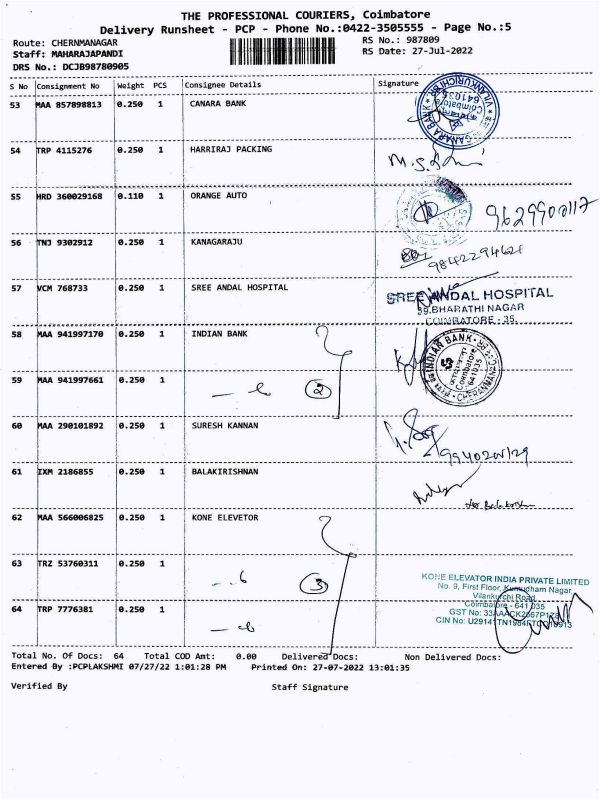 THE PROFESSIONAL COURIERS, Coimbatore
Delivery Runsheet - PCP - Phone No.:0422-3505555 - Page No.:5
Route: CHERNMANAGAR RS No.: 987809
Staff: MAHARAJAPANDI RS Date: 27-Jul-2022
DRS No.: DCJB98780905
S No Consignment No Weight PCS Consignee Details Signature
53 MAA 857898813 0.250 1 CANARA BANK
CANARA BANK
Coimbatore
641035
54 TRP 4115276 0.250 1 HARRIRAJ PACKING
55 HRD 360029168 0.110 1 ORANGE AUTO
56 TNJ 9302912 0.250 1 KANAGARAJU
57 VCM 768733 0.250 1 SREE ANDAL HOSPITAL
SREE ANDAL HOSPITAL
39,BHARATHI NAGAR
COIMBATORE - 35.
58 MAA 941997170 0.250 1 INDIAN BANK
INDIAN BANK
Coimbatore
641035
59 MAA 941997661 0.250 1
2
60 MAA 290101892 0.250 1 SURESH KANNAN
61 IXM 2186855 0.250 1 BALAKIRISHNAN
62 MAA 566006825 0.250 1 KONE ELEVETOR
63 TRZ 53760311 0.250 1
3
KONE ELEVATOR INDIA PRIVATE LIMITED
No. 9, First Floor, Kumudham Nagar,
Vilankurichi Road,
Coimbatore - 641 035
64 TRP 7776381 0.250 1
GST No:
CIN No:
Total No. Of Docs: 64 Total COD Amt: 0.00 Delivered Docs: Non Delivered Docs:
Entered By :PCPLAKSHMI 07/27/22 1:01:28 PM Printed On: 27-07-2022 13:01:35
Verified By Staff Signature